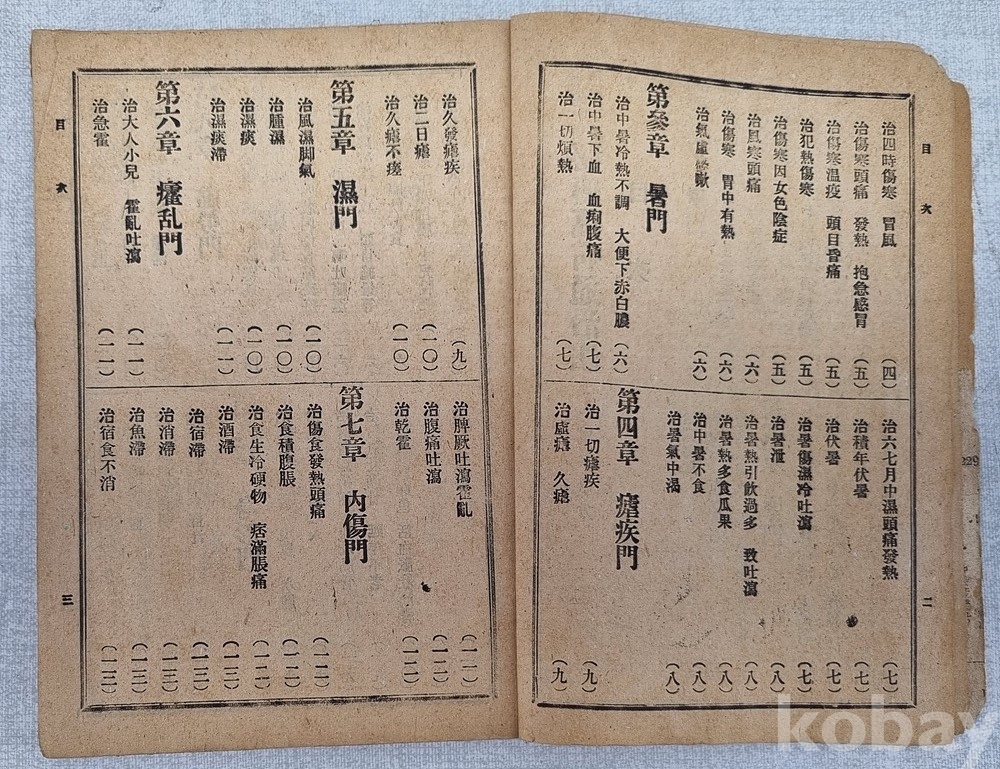 目次
治四時傷寒 冒風 (四)
治傷寒頭痛 發熱 抱急感冒 (五)
治傷寒溫疫 頭目昏痛 (五)
治犯熱傷寒 (五)
治傷寒因女色陰症 (五)
治風寒頭痛 (六)
治傷寒 胃中有熱 (六)
治氣虛 嗽 (六)
第參章 暑門
治中暑冷熱不調 大便下赤白膿 (六)
治中暑下血 血痢腹痛 (七)
治一切煩熱 (七)
治六七月中濕頭痛發熱 (七)
治積年伏暑 (七)
治伏暑 (七)
治暑傷濕冷吐瀉 (七)
治暑泄 (八)
治暑熱引飮過多 致吐瀉 (八)
治暑熱多食瓜果 (八)
治中暑不食 (八)
治暑氣中渴 (八)
第四章 瘧疾門
治一切瘧疾 (九)
治虛瘧 久瘧 (九)
二
治久發瘧疾 (九)
治二日瘧 (一〇)
治久瘧不瘥 (一〇)
第五章 濕門
治風濕脚氣 (一〇)
治腫濕 (一〇)
治濕痰 (一〇)
治濕痰滯 (一一)
第六章 癨乱門
治大人小兒 霍亂吐瀉 (一一)
治急霍 (一一)
治脾厥吐瀉霍亂 (一一)
治腹痛吐瀉 (一二)
治乾霍 (一二)
第七章 內傷門
治傷食發熱頭痛 (一二)
治食積腹脹 (一二)
治食生冷硬物 痞滿脹痛 (一二)
治酒滯 (一三)
治宿滯 (一三)
治消滯 (一三)
治魚滯 (一三)
治宿食不消 (一三)
目次
三
kobay